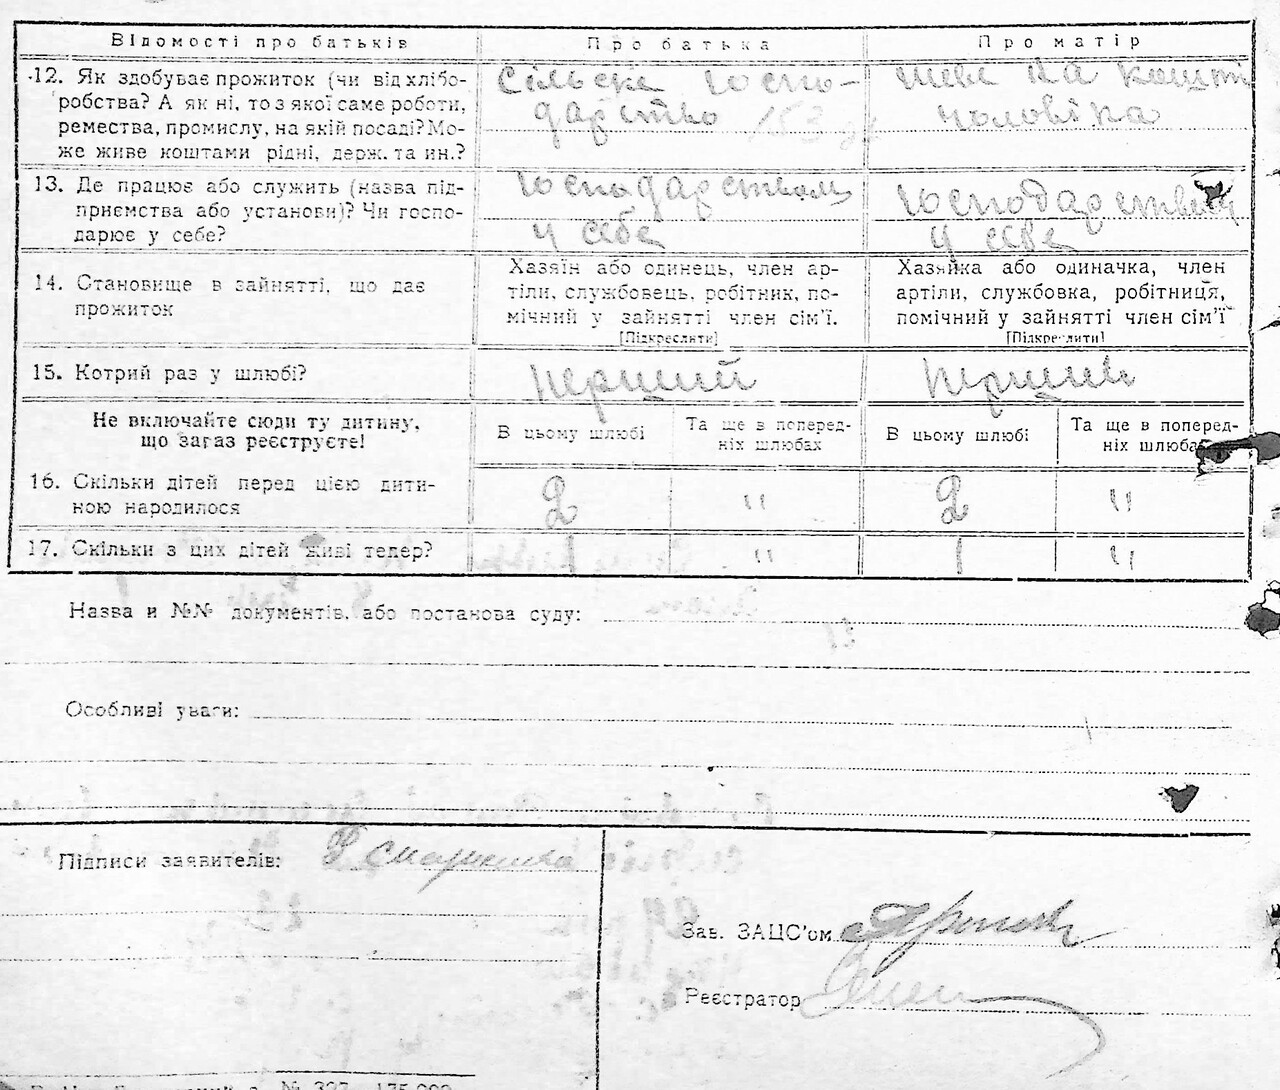 Відомості про батьків
Про батька
Про матір
12. Як здобуває прожиток (чи від хлібо-
робства? А як ні, то з якої саме роботи,
ремества, промислу, на якій посаді? Мо-
же живе коштами рідні, держ. та ин.?
Сільске госпо-
дарство 153
живе на кошті
чоловіка
13. Де працює або служить (назва під-
приємства або установи)? Чи госпо-
дарює у себе?
Господарством
у себе
Господарством
у себе
14. Становище в зайнятті, що дає
прожиток
Хазяїн або одинець, член ар-
тіли, службовець, робітник, по-
мічний у зайнятті член сім'ї.
[Підкреслити]
Хазяйка або одиначка, член
артіли, службовка, робітниця,
помічний у зайнятті член сім'ї
[Підкреслити]
15. Котрий раз у шлюбі?
перший
перший
Не включайте сюди ту дитину,
що зараз реєструєте!
В цьому шлюбі
Та ще в поперед-
ніх шлюбах
В цьому шлюбі
Та ще в поперед-
ніх шлюбах
16. Скільки дітей перед цією дити-
ною народилося
2
"
2
"
17. Скільки з цих дітей живі тепер?
1
"
1
"
Назва и №№ документів, або постанова суду:
13
Особливі уваги:
Підписи заявителів:
Зав. ЗАЦС'ом
Реєстратор
№ 327 175.000